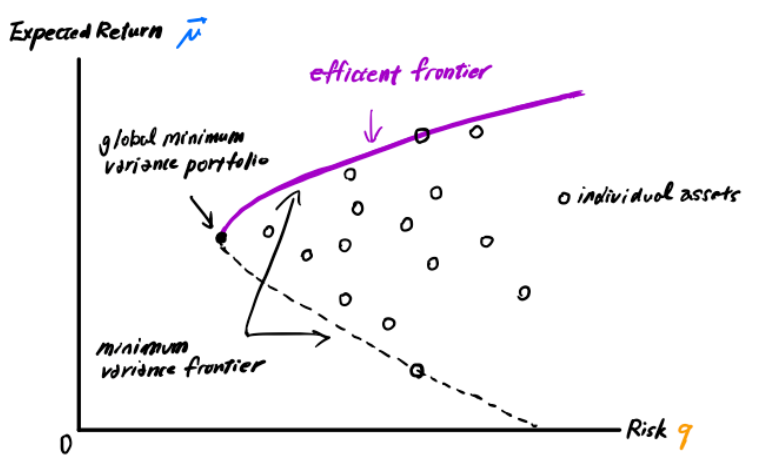 Expected Return μ⃗
efficient frontier
global minimum
variance portfolio
individual assets
minimum
variance frontier
0
Risk q